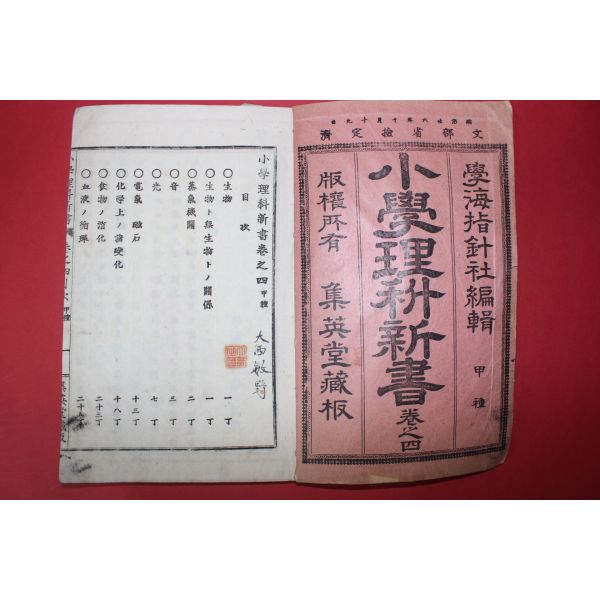 明治廿六年十月十九日
文部省檢定濟
學海指針社編輯
甲種
小學理科新書
卷之四
版權所有
集英堂藏板
小學理科新書卷之四 甲種
目次
○生物 一丁
○生物ト無生物トノ關係 一丁
○蒸氣機關 二丁
○音 三丁
○光 七丁
○電氣 磁石 十三丁
○化學上ノ諸變化 十八丁
○食物ノ消化 二十三丁
○血液ノ循環
甲種